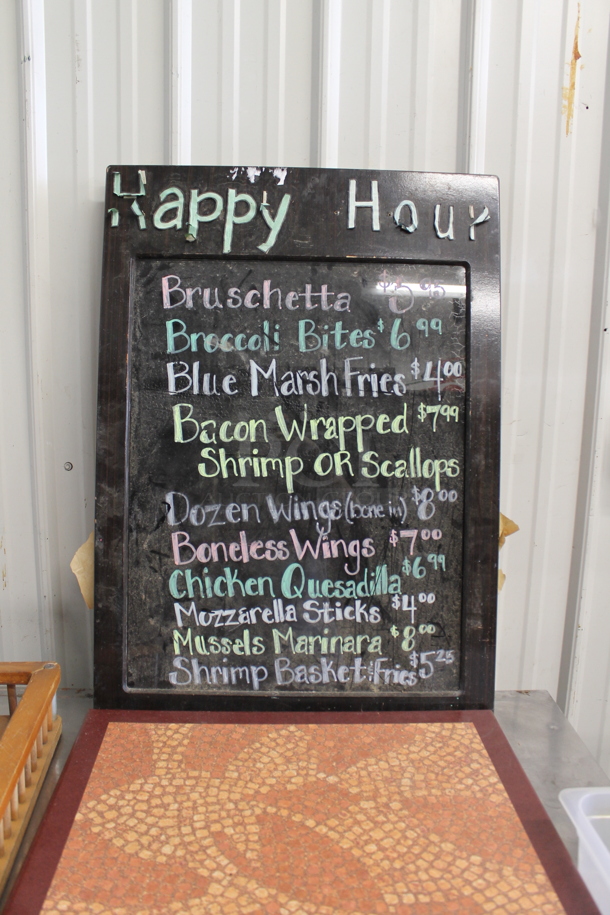 Happy Hour
Bruschetta $5.95
Broccoli Bites $6.99
Blue Marsh Fries $4.00
Bacon Wrapped $7.99
Shrimp OR Scallops
Dozen Wings (bone in) $8.00
Boneless Wings $7.00
Chicken Quesadilla $6.99
Mozzarella Sticks $4.00
Mussels Marinara $8.00
Shrimp Basket Fries $5.25